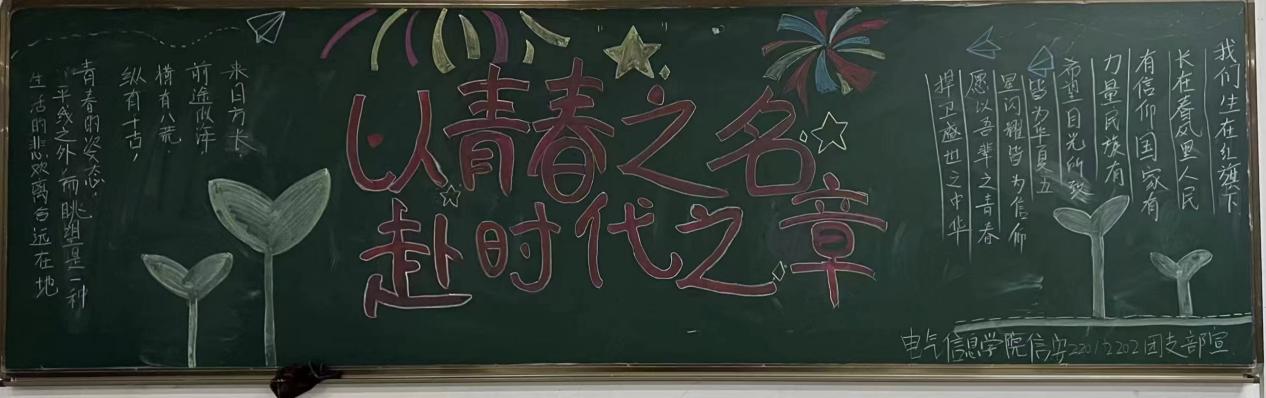 以青春之名
赴时代之章
生活的悲欢离合远在地
平线之外,而眺望是一种
青春的姿态.
纵有千古,
横有八荒.
前途似海.
来日方长.
我们生在红旗下
长在春风里人民
有信仰国家有
力量民族有
希望目光所致
皆为华夏五
星闪耀皆为信仰
愿以吾辈之青春
捍卫盛世之中华
电气信息学院信安2201、2202团支部宣